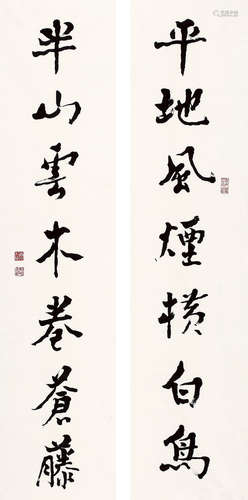 平地風煙橫白鳥
半山雲木卷蒼藤